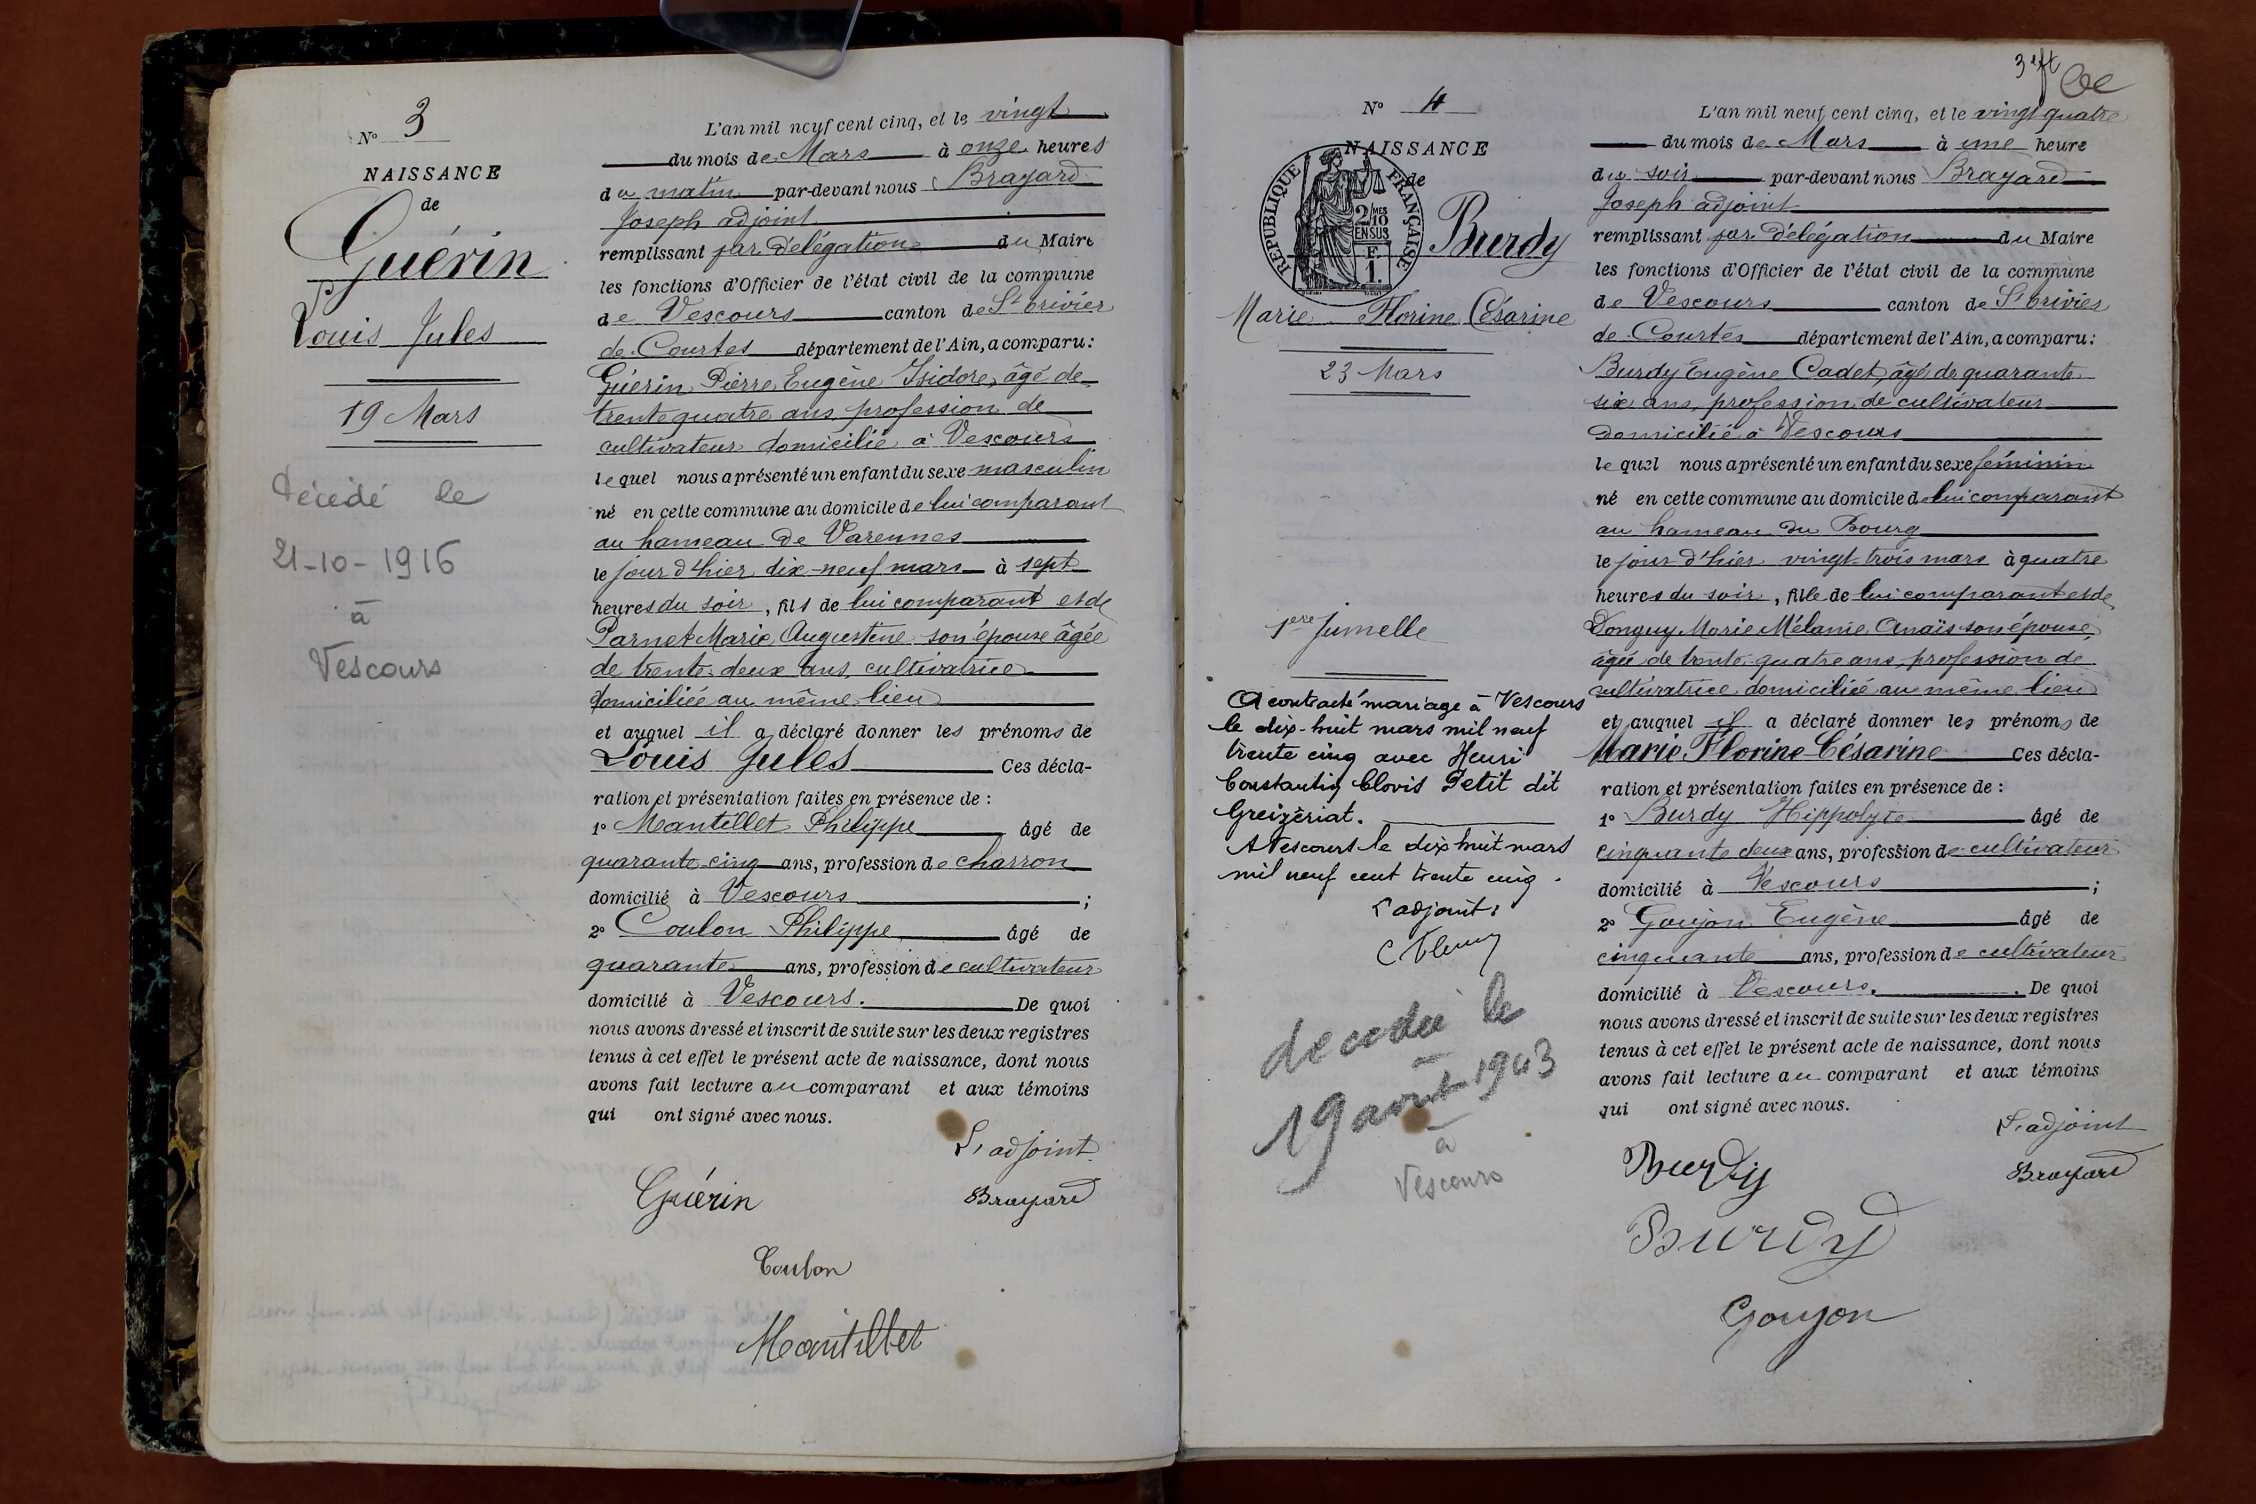 N° 3
NAISSANCE
de
Guérin
Louis Jules
19 Mars
Décédé le
21-10-1916
à
Vescours
L'an mil neuf cent cinq, et le vingt
du mois de Mars à onze heures
du matin par-devant nous Brayard
Joseph adjoint
remplissant par délégation du Maire
les fonctions d'Officier de l'état civil de la commune
de Vescours canton de St trivier
de Courtes département de l'Ain, a comparu :
Guérin Pierre Eugène Isidore, âgé de
trente quatre ans profession de
cultivateur domicilié à Vescours
lequel nous a présenté un enfant du sexe masculin
né en cette commune au domicile de lui comparant
au hameau de Varennes
le jour d'hier dix-neuf mars à sept
heures du soir, fils de lui comparant et de
Parnet Marie Augustine son épouse âgée
de trente deux ans cultivatrice
domiciliée au même lieu
et auquel il a déclaré donner les prénoms de
Louis Jules Ces décla-
ration et présentation faites en présence de :
1° Mantillet Philippe âgé de
quarante cinq ans, profession de charron
domicilié à Vescours ;
2° Coulon Philippe âgé de
quarante ans, profession de cultivateur
domicilié à Vescours. De quoi
nous avons dressé et inscrit de suite sur les deux registres
tenus à cet effet le présent acte de naissance, dont nous
avons fait lecture au comparant et aux témoins
qui ont signé avec nous.
L'adjoint
Guérin Brayard
Coulon
Mantillet
3 ft
N° 4
NAISSANCE
de
RÉPUBLIQUE FRANÇAISE
2/10 MES
EN SUS
F.
1.
Burdy
Marie Florine Césarine
23 Mars
1ère Jumelle
A contracté mariage à Vescours
le dix-huit mars mil neuf
trente cinq avec Henri
Constantin Clovis Petit dit
Greizèriat.
A Vescours le dix huit mars
mil neuf cent trente cinq.
L'adjoint :
decedée le
19 août 1943
à
Vescours
L'an mil neuf cent cinq, et le vingt quatre
du mois de Mars à une heure
du soir par-devant nous Brayard
Joseph adjoint
remplissant par délégation du Maire
les fonctions d'Officier de l'état civil de la commune
de Vescours canton de St trivier
de Courtes département de l'Ain, a comparu :
Burdy Eugène Cadet, âgé de quarante
six ans, profession de cultivateur
domicilié à Vescours
lequel nous a présenté un enfant du sexe féminin
né en cette commune au domicile de lui comparant
au hameau du Bourg
le jour d'hier vingt-trois mars à quatre
heures du soir, fille de lui comparant et de
Donguy Marie Mélanie Anaïs son épouse
âgée de trente quatre ans profession de
cultivatrice domiciliée au même lieu
et auquel il a déclaré donner les prénoms de
Marie Florine Césarine Ces décla-
ration et présentation faites en présence de :
1° Burdy Hippolyte âgé de
cinquante deux ans, profession de cultivateur
domicilié à Vescours ;
2° Goujon Eugène âgé de
cinquante ans, profession de cultivateur
domicilié à Vescours. De quoi
nous avons dressé et inscrit de suite sur les deux registres
tenus à cet effet le présent acte de naissance, dont nous
avons fait lecture au comparant et aux témoins
qui ont signé avec nous.
L'adjoint
Burdy Brayard
Burdy
Goujon